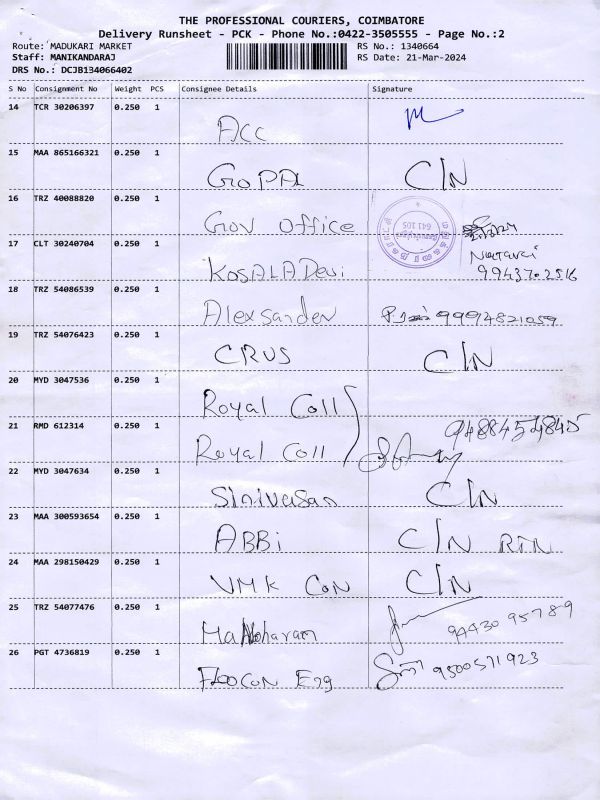 THE PROFESSIONAL COURIERS, COIMBATORE
Delivery Runsheet - PCK - Phone No.:0422-3505555 - Page No.:2
Route: MADUKARI MARKET RS No.: 1340664
Staff: MANIKANDARAJ RS Date: 21-Mar-2024
DRS No.: DCJB134066402
S No Consignment No Weight PCS Consignee Details Signature
14 TCR 30206397 0.250 1
ACC
15 MAA 865166321 0.250 1
GOPAL C/N
16 TRZ 40088820 0.250 1
Gov office 641 105
17 CLT 30240704 0.250 1
KOSALA Devi 99437 02516
18 TRZ 54086539 0.250 1
Alexsander 9994821059
19 TRZ 54076423 0.250 1
CRUS C/N
20 MYD 3047536 0.250 1
Royal Coll
21 RMD 612314 0.250 1 9488454845
Royal Coll
22 MYD 3047634 0.250 1
Sinivasan C/N
23 MAA 300593654 0.250 1
ABBi C/N RTN
24 MAA 298150429 0.250 1
VMK Con C/N
25 TRZ 54077476 0.250 1
Manoharam 94430 95789
26 PGT 4736819 0.250 1
Floocon Eng 9500571923